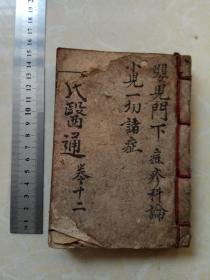 嬰児門下 痘疹科論
小児一切諸症
氏醫通 拳十二